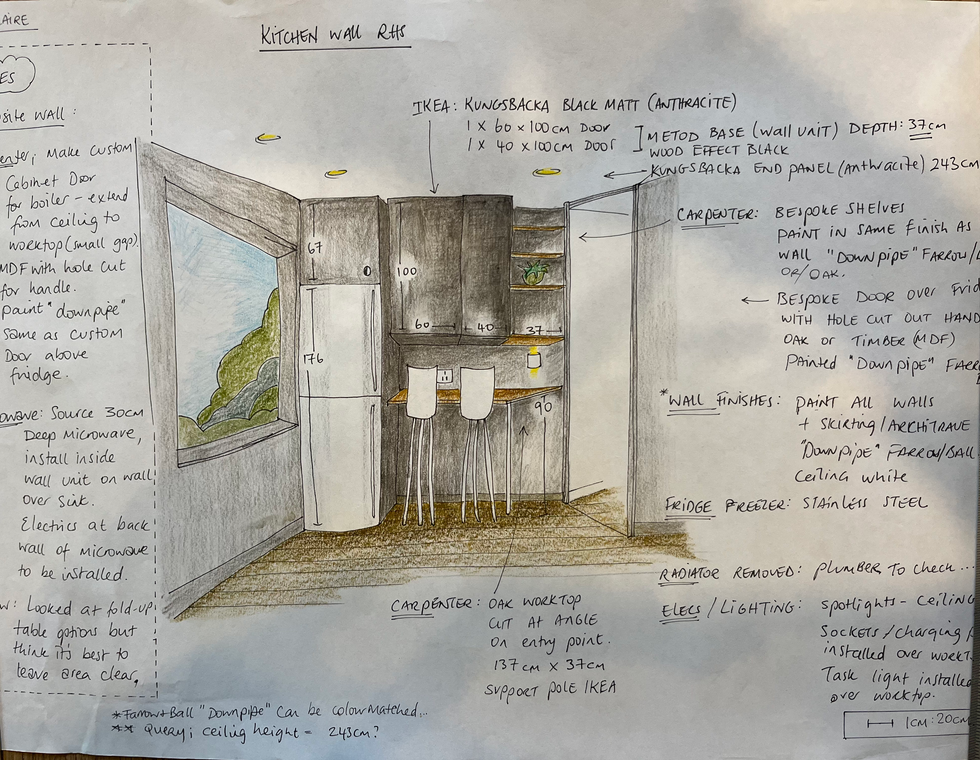 AIRE
KITCHEN WALL RHS
ES
SITE WALL:
enter; MAKE CUSTOM
Cabinet Door
for boiler - extend
from ceiling to
worktop (small gap).
MDF with hole cut
for handle.
paint "downpipe"
Same as custom
Door above
fridge.
owave: Source 30cm
Deep microwave,
install inside
wall unit on wall
over sink.
Electrics at back
wall of microwave
to be installed.
w: Looked at fold-up
table options but
think it's best to
leave area clear,
IKEA: KUNGSBACKA BLACK MATT (ANTHRACITE)
1 X 60 x 100cm Door
1 X 40 x 100cm Door
METOD BASE (wall unit) DEPTH: 37cm
WOOD EFFECT BLACK
KUNGSBACKA END PANEL (Anthracite) 243cm
67
100
60
40
37
176
90
CARPENTER: BESPOKE SHELVES
PAINT IN SAME FINISH AS
WALL "DOWNPIPE" FARROW/
OR/OAK.
BESPOKE DOOR over Frid
WITH HOLE CUT OUT HAND
OAK or TIMBER (MDF)
Painted "Downpipe" FARR
*WALL FINISHES: PAINT ALL WALLS
+ SKIRTING/ARCHITRAVE
"Downpipe" FARROW/BALL
Ceiling white
FRIDGE FREEZER: STAINLESS STEEL
RADIATOR REMOVED: PLUMBER TO CHECK...
ELECS/LIGHTING: spotlights - ceiling
Sockets/charging
installed over workt
Task light installed
over worktop.
CARPENTER: OAK WORKTOP
CUT AT ANGLE
ON entry point.
137cm x 37cm
SUPPORT POLE IKEA
*Farrow+Ball "Downpipe" Can be colourmatched...
** Query; ceiling height = 243cm?
1cm: 20cm